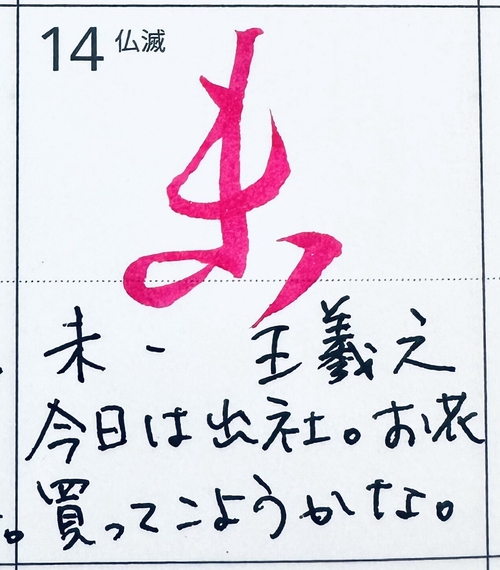 14 仏滅
未
未一 王羲之
今日は出社。お花
買ってこようかな。